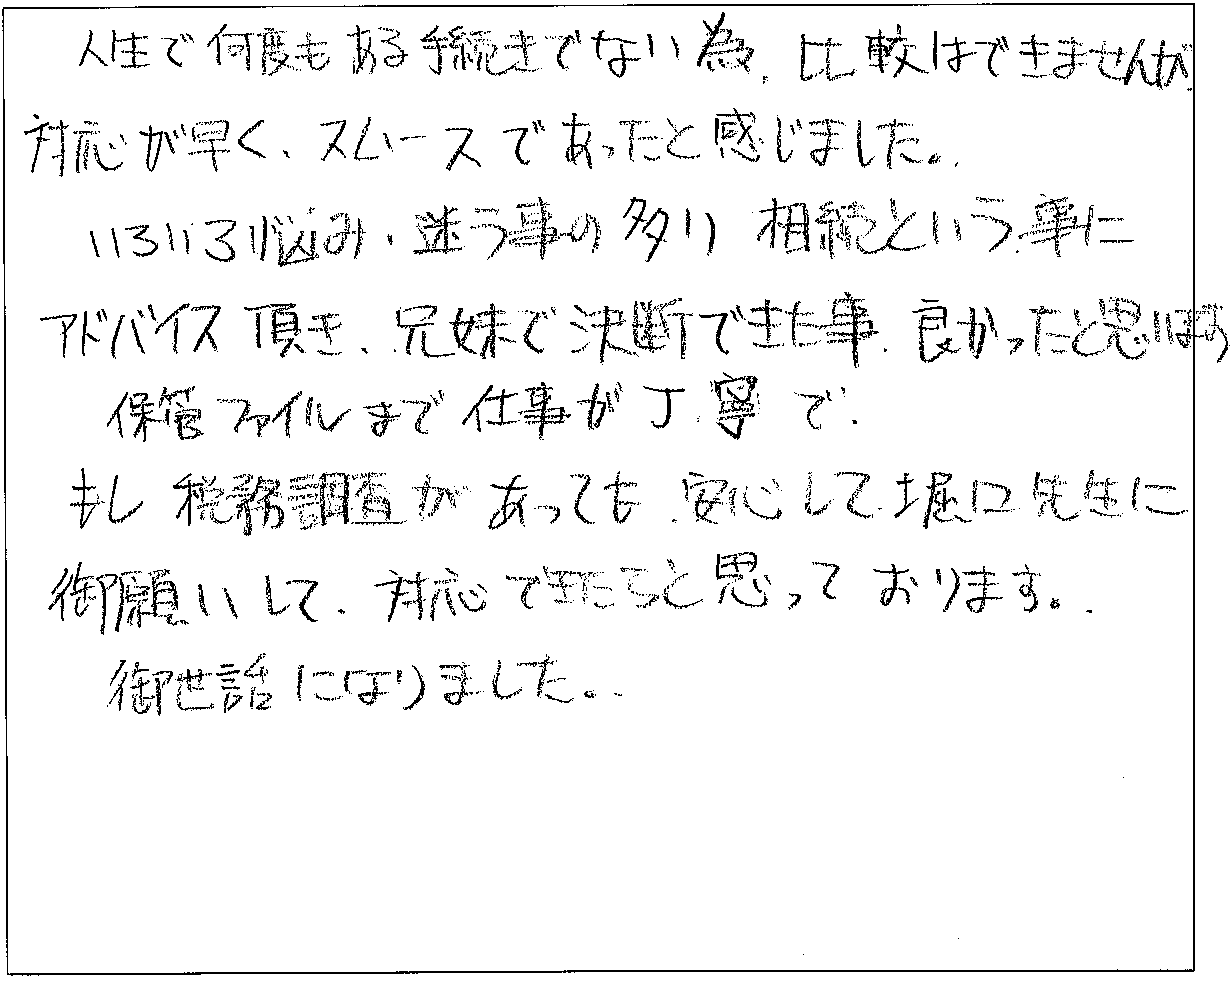 人生で何度もある手続きでない為、比較はできませんが
対応が早く、スムースであったと感じました。
いろいろ悩み、迷う事の多い相続という事に
アドバイス頂き、兄妹で決断できた事、良かったと思います
保管ファイルまで仕事が丁寧で、
もし税務調査があっても、安心して堀口先生に
御願いして、対応できたらと思っております。
御世話になりました。